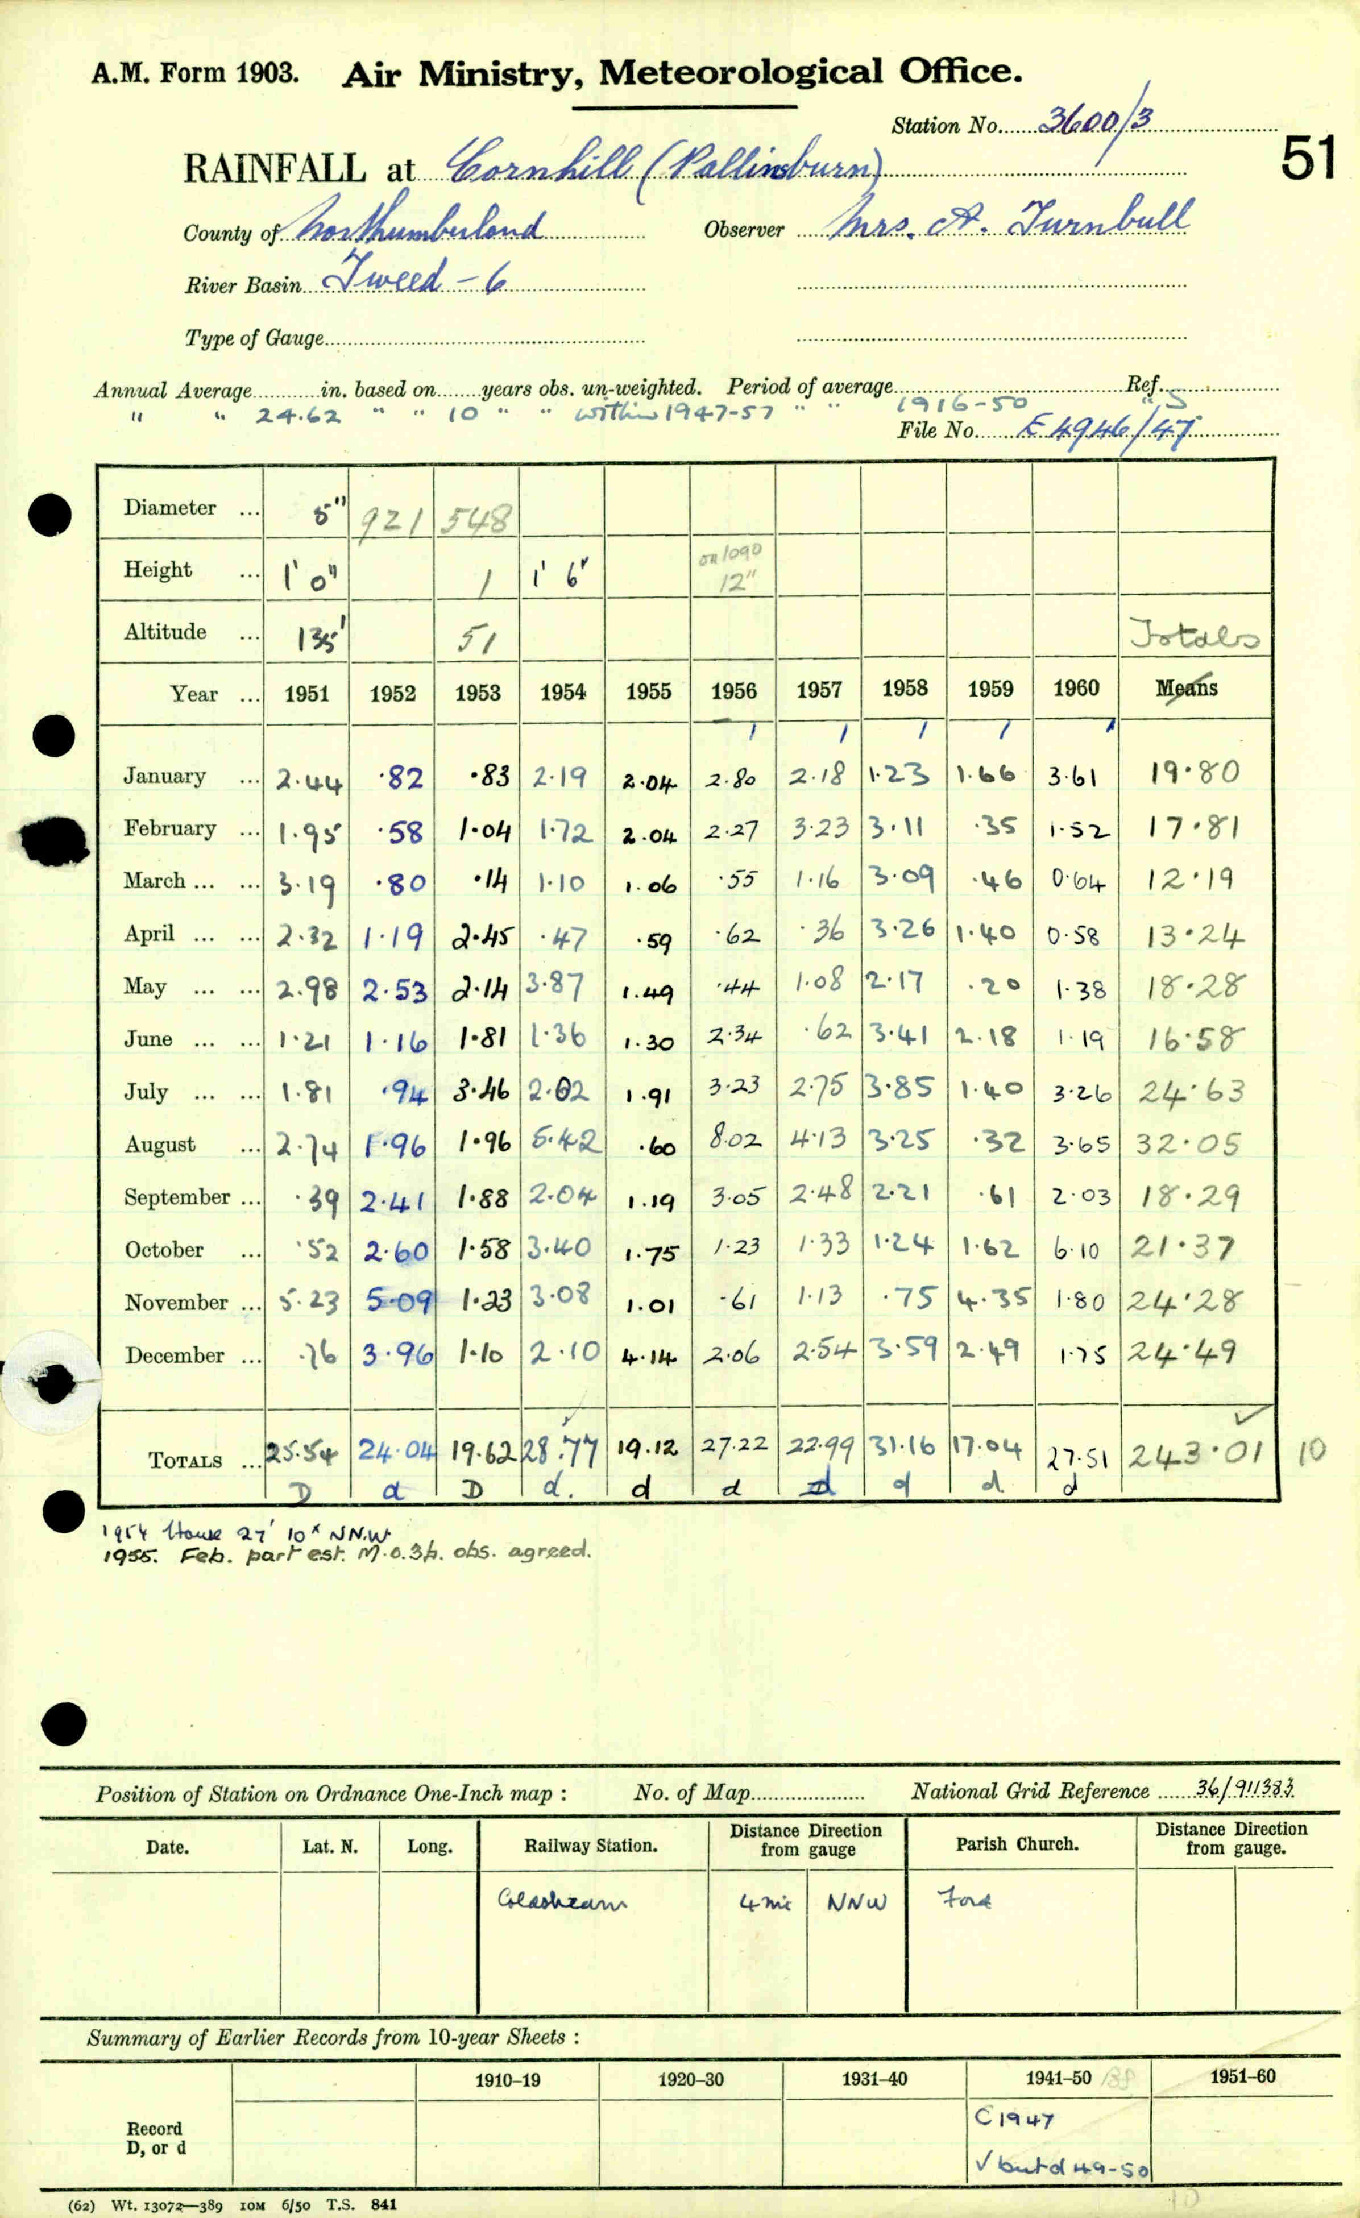 A.M. Form 1903. Air Ministry, Meteorological Office.
Station No. 3600/3
51
RAINFALL at Cornhill (Pallinsburn)
County of Northumberland Observer Mrs. A. Turnbull
River Basin Tweed - 6
Type of Gauge
Annual Average in. based on years obs. un-weighted. Period of average Ref.
" " 24.62 " " 10 " " within 1947-57 " " 1916-50 " S
File No. E 4946/47
Diameter ... 5" 921 548
Height ... 1' 0" 1 1' 6" on 1090 12"
Altitude ... 135' 51 Totals
Year ... 1951 1952 1953 1954 1955 1956 1957 1958 1959 1960 Means
January ... 2.44 .82 .83 2.19 2.04 2.80 2.18 1.23 1.66 3.61 19.80
February ... 1.95 .58 1.04 1.72 2.04 2.27 3.23 3.11 .35 1.52 17.81
March ... ... 3.19 .80 .14 1.10 1.06 .55 1.16 3.09 .46 0.64 12.19
April ... ... 2.32 1.19 2.45 .47 .59 .62 .36 3.26 1.40 0.58 13.24
May ... ... 2.98 2.53 2.14 3.87 1.49 .44 1.08 2.17 .20 1.38 18.28
June ... ... 1.21 1.16 1.81 1.36 1.30 2.34 .62 3.41 2.18 1.19 16.58
July ... ... 1.81 .94 3.46 2.02 1.91 3.23 2.75 3.85 1.40 3.26 24.63
August ... 2.74 1.96 1.96 5.42 .60 8.02 4.13 3.25 .32 3.65 32.05
September ... .39 2.41 1.88 2.04 1.19 3.05 2.48 2.21 .61 2.03 18.29
October ... .52 2.60 1.58 3.40 1.75 1.23 1.33 1.24 1.62 6.10 21.37
November ... 5.23 5.09 1.23 3.08 1.01 .61 1.13 .75 4.35 1.80 24.28
December ... .76 3.96 1.10 2.10 4.14 2.06 2.54 3.59 2.49 1.75 24.49
TOTALS ... 25.54 24.04 19.62 28.77 19.12 27.22 22.99 31.16 17.04 27.51 243.01 10
D d D d. d d d d d d
1954 House 27' 10" NNW
1955. Feb. part est. M.O.3b. obs. agreed.
Position of Station on Ordnance One-Inch map : No. of Map National Grid Reference 36/911383
Date. Lat. N. Long. Railway Station. Distance Direction from gauge Parish Church. Distance Direction from gauge.
Coldstream 4 mi NNW Ford
Summary of Earlier Records from 10-year Sheets :
1910-19 1920-30 1931-40 1941-50 1951-60
Record D, or d
C 1947
√ but d 49-50
10
(62) Wt. 13072—389 10M 6/50 T.S. 841